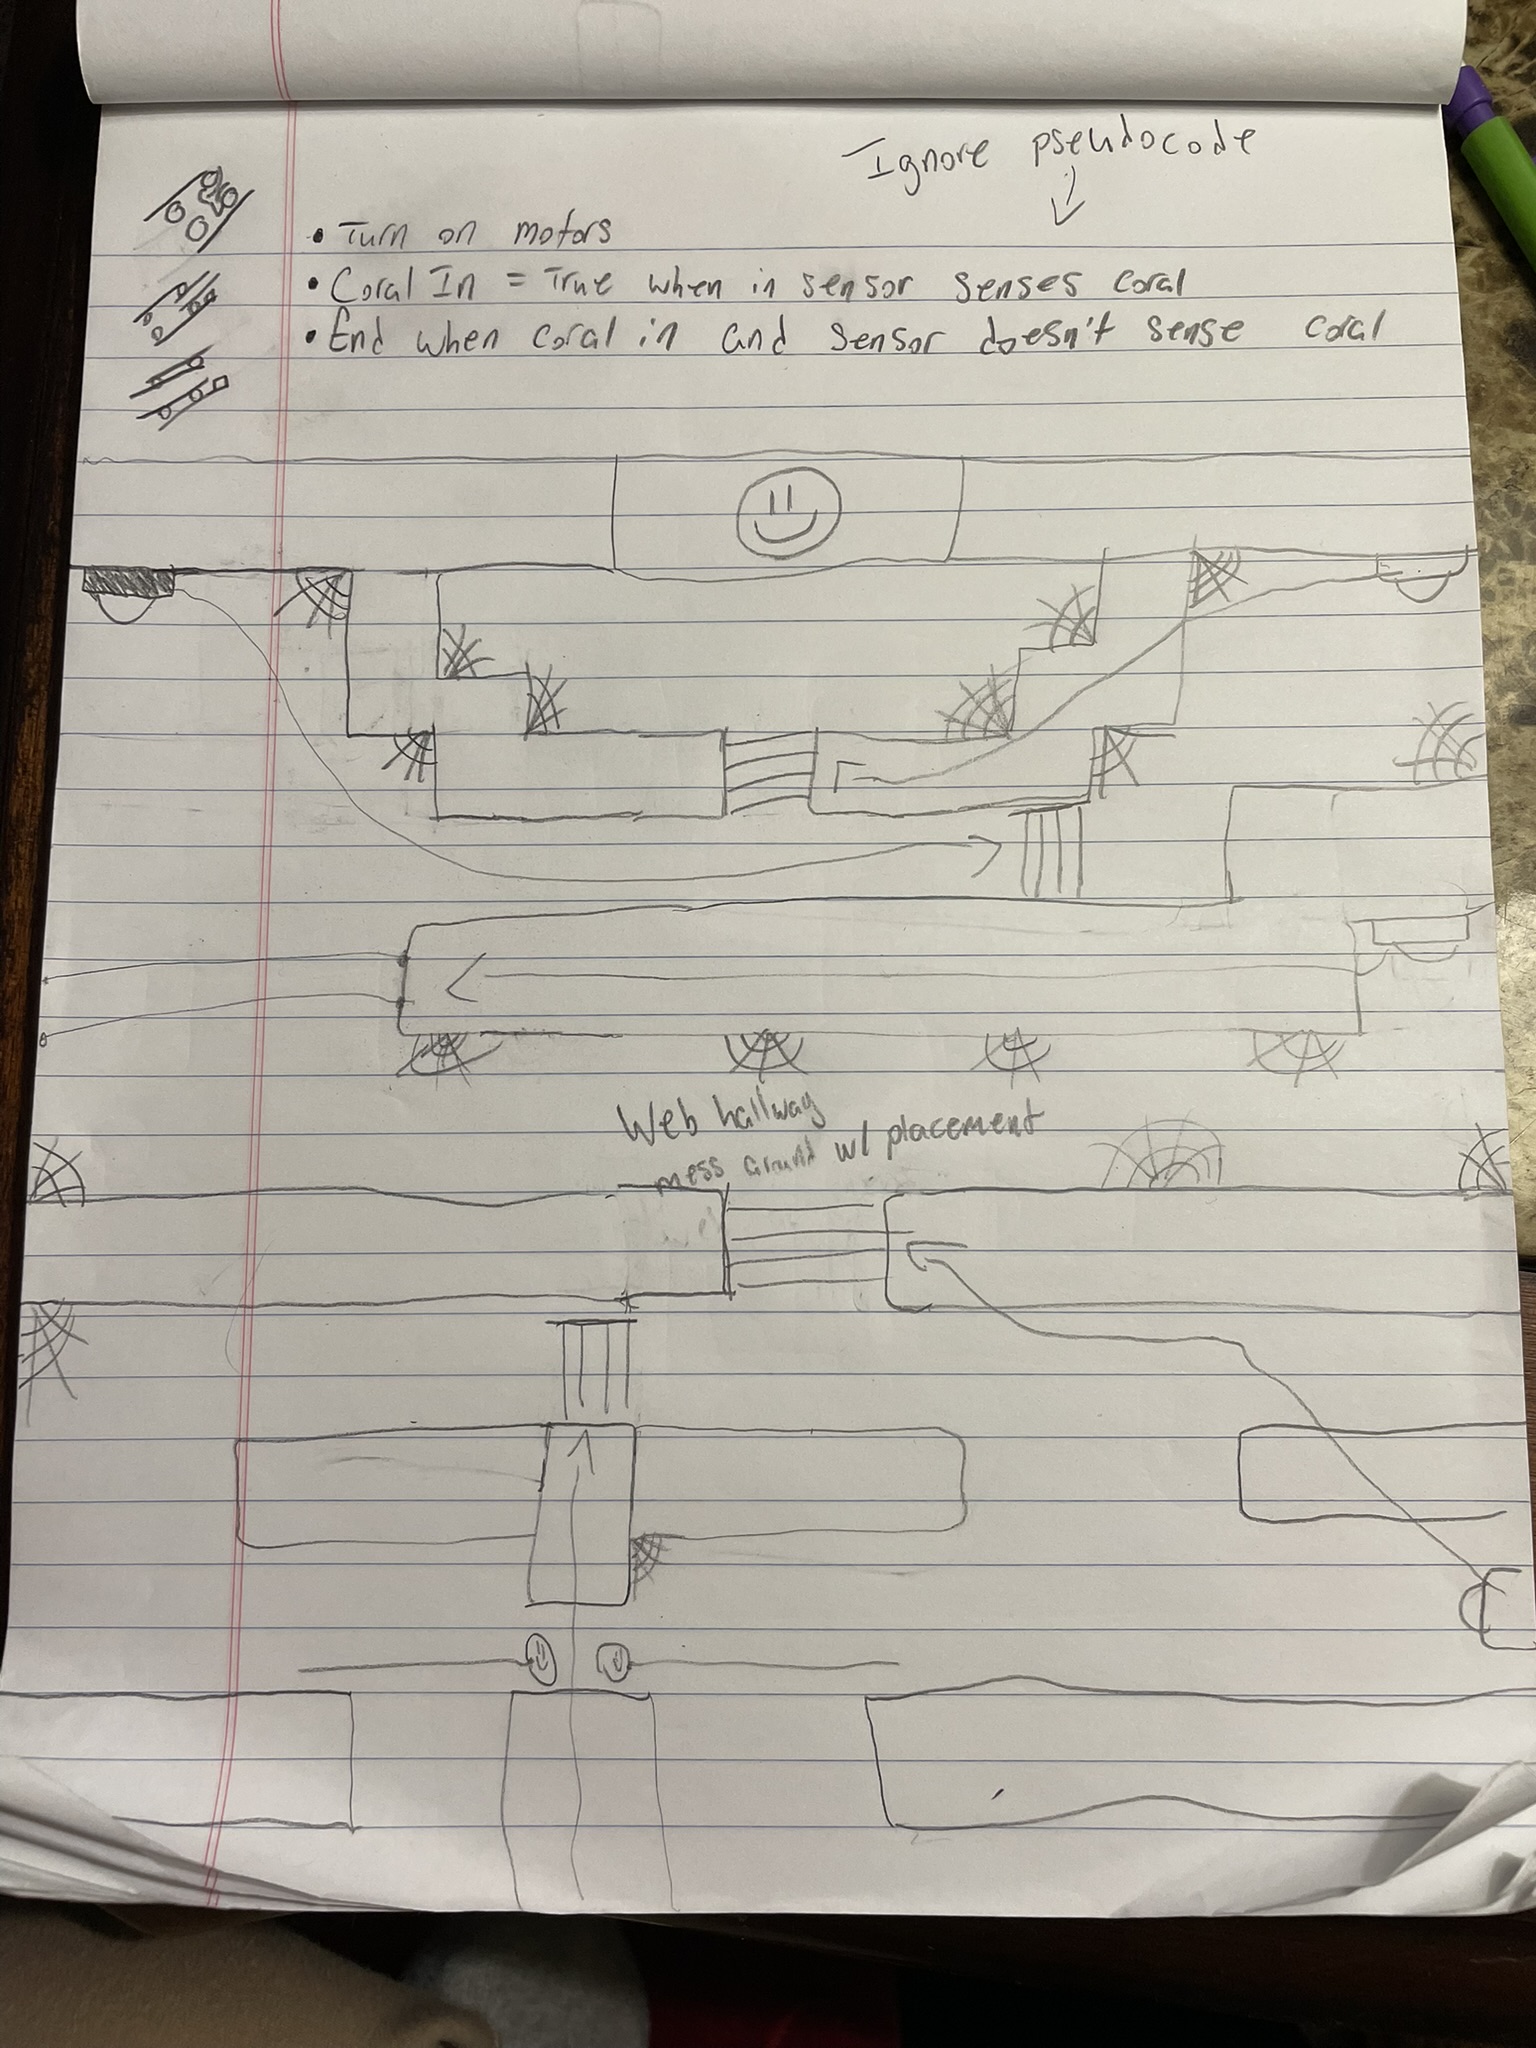 Ignore pseudocode
• Turn on motors
• Coral In = True when in sensor senses coral
• End when coral in and sensor doesn't sense coral
Web hallway
mess around w/ placement